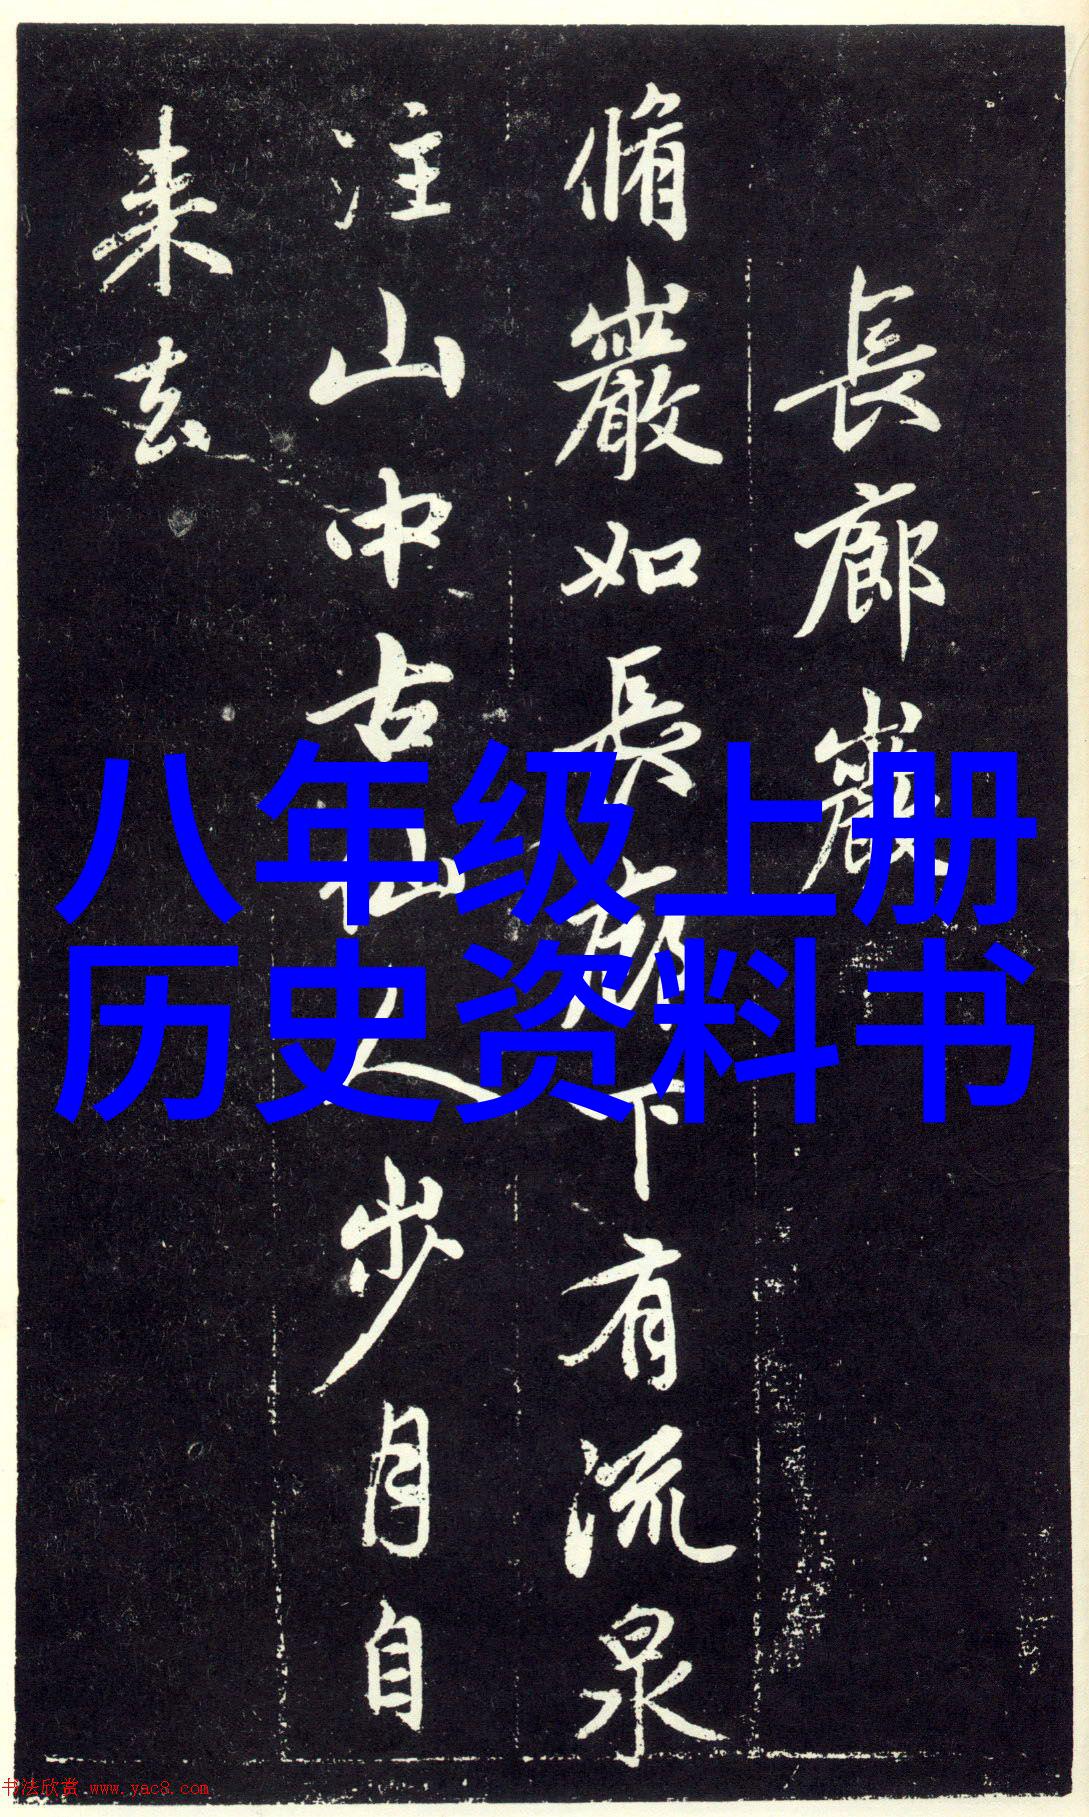 長廊巖
脩巖如長廊下有流泉
注山中古仙人步月自
来去
八年级上册
历史资料书
书法欣赏 www.yac8.com